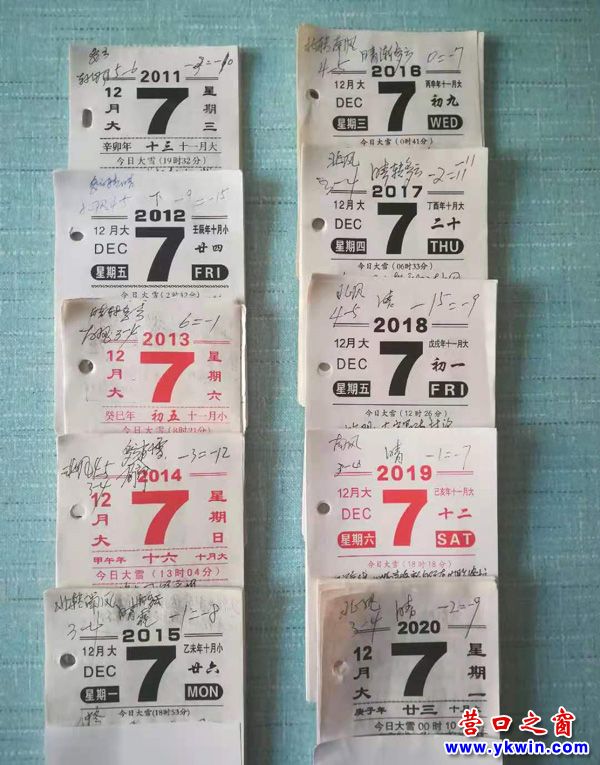 2011
12月大
7
星期三
辛卯年 十三 十一月大
今日大雪(19时32分)
2012
12月大
DEC
星期五
7
壬辰年十月小
廿四
FRI
-9=-15
2013
12月大
7
星期六
癸巳年 初五 十一月小
6=-1
2014
12月大
7
星期日
甲午年 十六 十月大
今日大雪(13时04分)
-3=-12
2015
12月大
DEC
星期一
7
乙未年十月小
廿六
MON
今日大雪(18时53分)
3-4
-1=-8
北转南风
晴渐多云
0=-7
4-5
2016
12月大
DEC
星期三
7
丙申年十一月大
初九
WED
今日大雪(0时41分)
北风
晴转多云
-2=-11
2017
12月大
DEC
星期四
7
丁酉年十月大
二十
THU
今日大雪(06时33分)
北风
4-5
晴
-15=-9
2018
12月大
DEC
星期五
7
戊戌年十一月大
初一
FRI
今日大雪(12时26分)
南风
3-4
晴
-1=-7
2019
12月大
DEC
星期六
7
己亥年十一月大
十二
SAT
今日大雪(18时18分)
北风
3-4
晴
-2=-9
2020
12月大
7
星期一
庚子年 廿三
今日大雪00时10
营口之窗
www.ykwin.com